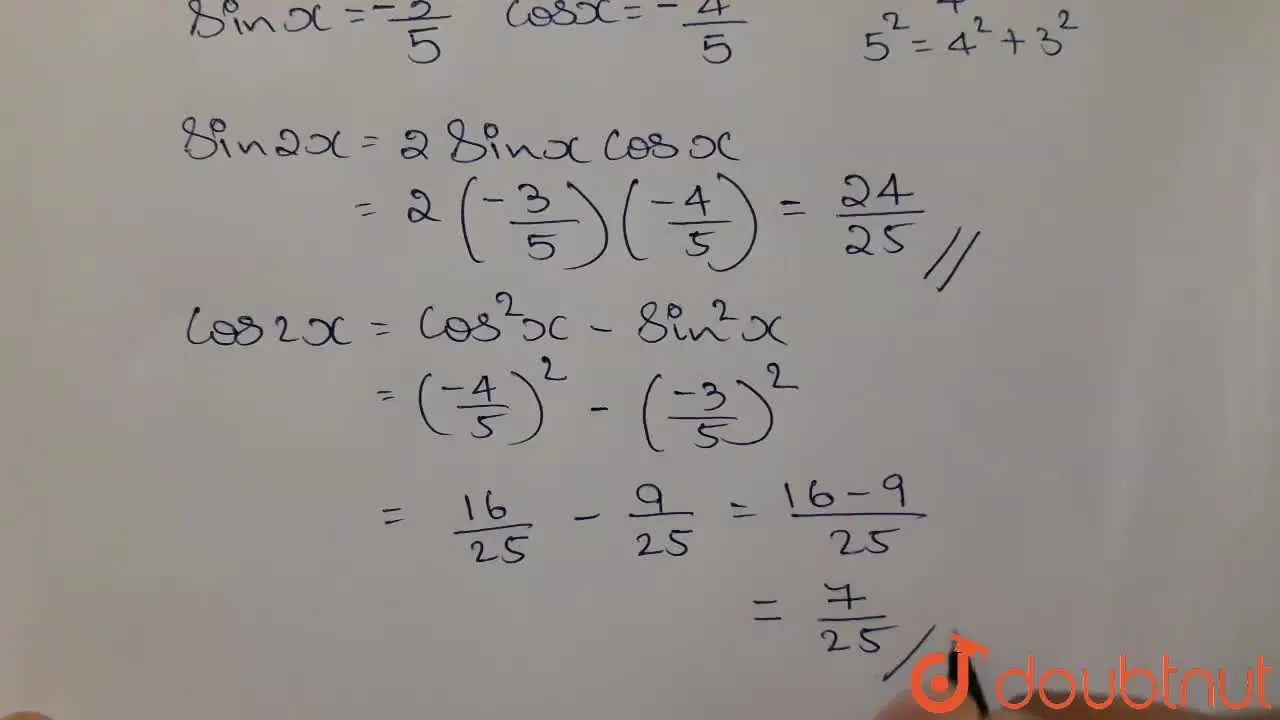 sin x = -3/5 cos x = -4/5 5² = 4² + 3²
sin 2x = 2 sin x cos x
= 2 (-3/5) (-4/5) = 24/25 //
cos 2x = cos² x - sin² x
= (-4/5)² - (-3/5)²
= 16/25 - 9/25 = 16 - 9/25
= 7/25 /
doubtnut